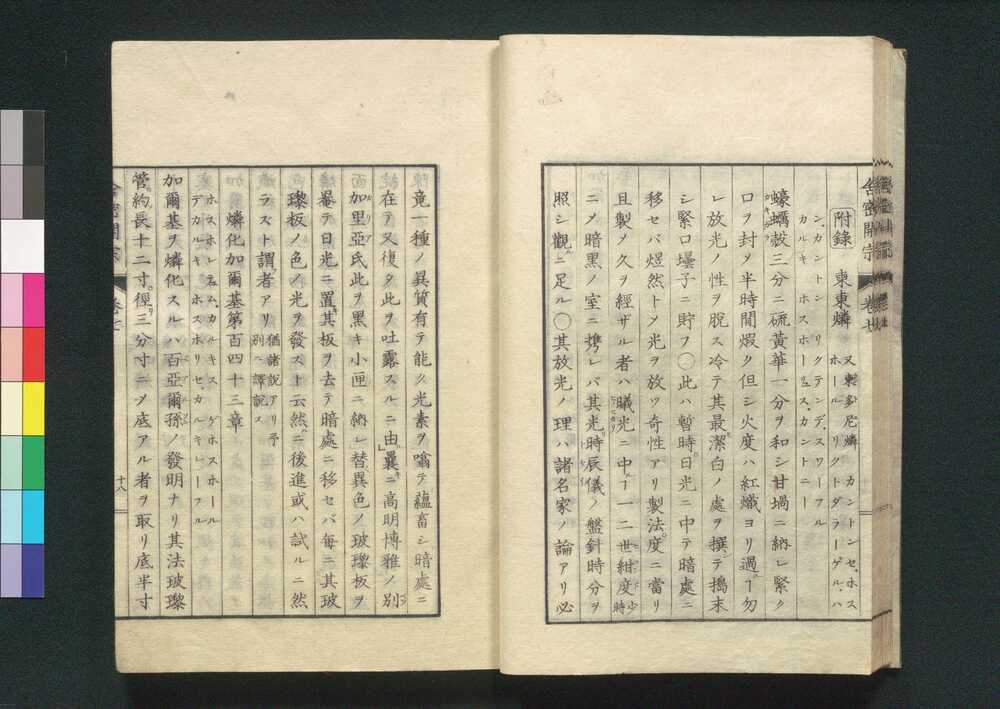 舎密開宗 巻七
附錄 東東燐 又東多尼燐 カントンセ、ホス
ホール リクトダラーゲル、ハ
ン、カントン リクテンデ、スワーフル
カルキ ホスホーリュス、カントニー
蠣殻三分ニ硫黃華一分ヲ和シ甘堝ニ納レ緊ク
口ヲ封メ半時間煆ク但シ火度ハ紅熾ヨリ過ー勿
レ放光ノ性ヲ脫ス冷テ其最潔白ノ處ヲ撰テ搗末
シ緊口壜子ニ貯フ〇此ハ暫時日光ニ中テ暗處ニ
移セバ煜然トメ光ヲ放ツ奇性アリ製法度ニ當リ
且製メ久ヲ經ザル者ハ曦光ニ中ー一二世紺度時
ニメ暗黑ノ室ニ携レバ其光時辰儀ノ盤針時分ヲ
照シ觀ニ足ル〇其放光ノ理ハ諸名家ノ論アリ必
竟一種ノ異質有テ能ク光素ヲ噏テ蘊畜シ暗處ニ
在テ又復タ此ヲ吐露スルニ由曩ニ高明博雅ノ別
加里亞氏此ヲ黑キ小匣ニ納レ替異色ノ玻瓈板ヲ
罨テ日光ニ置其板ヲ去テ暗處ニ移セバ每ニ其玻
瓈板ノ色ノ光ヲ發スト云然ニ後進或ハ試ルニ然
ラズト謂者アリ 猶諸說アリ予
別ニ譯說ス
燐化加爾基第百四十三章
ホスホレテュム、カルキス ゲホスホール
デカルキ ホスホリセ、カルキレーフル
加爾基ヲ燐化スルハ百亞爾孫ノ發明ナリ其法玻瓈
管約長十二寸徑三分寸ニメ底アル者ヲ取リ底半寸
舎密開宗 巻七 十八